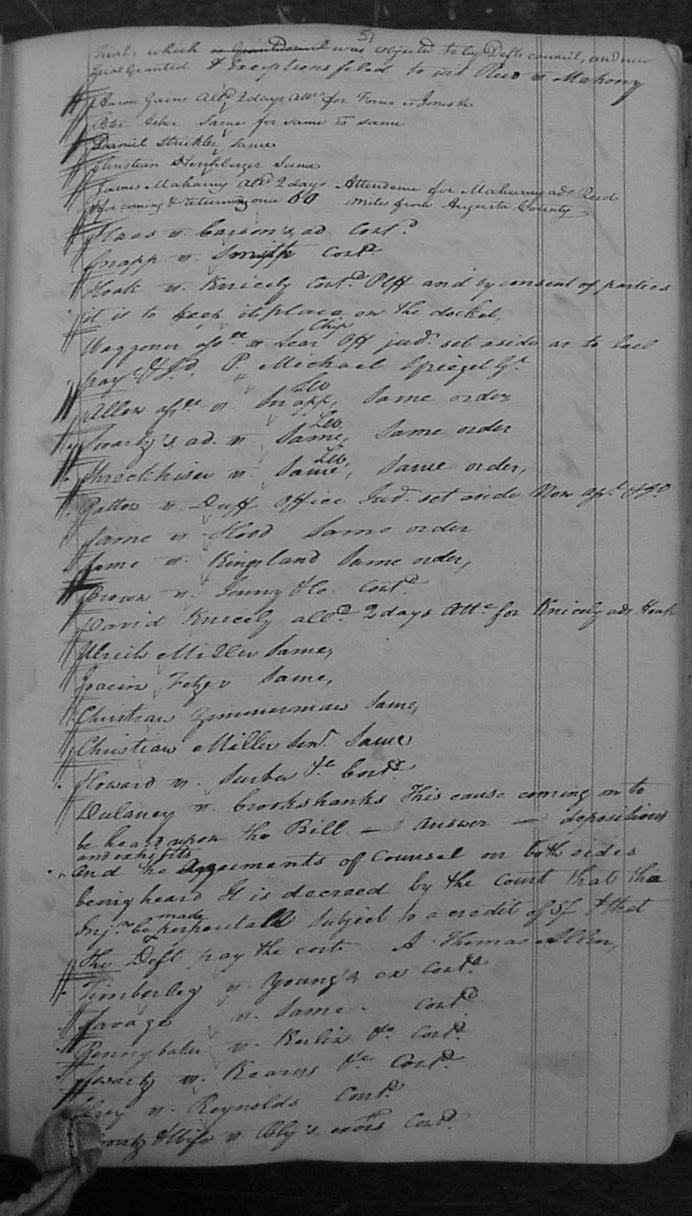 51
Trial, which was objected to by Defts council, and new
Trial Granted & Exceptions filed to in Reed v. Mahony
Aaron Gains alld 2 days atte for
Peter same for same vs same
Daniel Strickler same
Christian same
James Mahany alld 2 days Attendance for Mahany ads Reed
& for coming & returning once 60 miles from Augusta County
v. Carson's ad. Contd
Snapp v. Smith Contd
Hook v. Knicely Contd Plff and by consent of parties
it is to keep its place on the docket,
Waggoner v. Chip Off judt set aside as to
payt & Jd P. Michael Spiegel Gt
Allen v. Snapp, same order
Swartz's ad. v. Same, same order
v. Same, same order,
v. Duff office Judt set aside Non &
Same v. Hood Same order
Same v. Kingsland Same order,
Brown v. &c. Contd
David Knicely alld 2 days atte for Knicely ads Hook
Ulrich Miller Same,
Same,
Christian Zimmerman Same,
Christian Miller Senr. Same
Howard v. &c Contd
Dulaney v. Crookshanks This cause coming on to
be heard upon the Bill — Answer — depositions
and exhibits
And the Arguments of Counsel on both sides
being heard It is decreed by the Court that the
Injn. be made perpetual Subject to a credit of & that
the Deft pay the costs A Thomas Allen,
Timberley v. Young's ex Contd
Savage v. Same. Contd
Pennybaker v. Kerlin &c Contd
Swartz v. Kearns &c Contd
v. Reynolds Contd
& Wife v. Aby's exors Contd